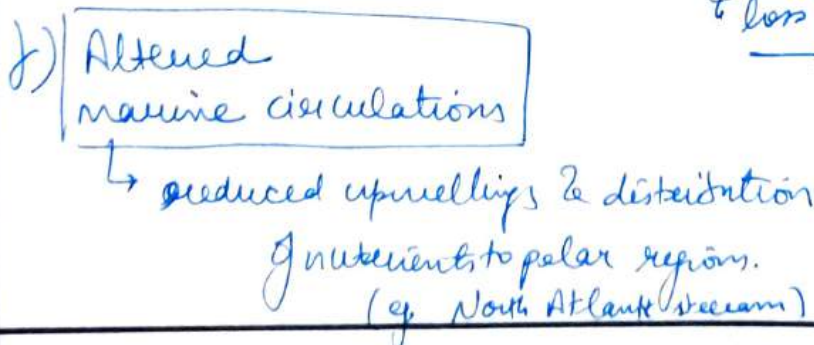 & loss
f) Altered
marine circulations
↳ reduced upwellings & distribution
of nutrients to polar regions.
(eg. North Atlantic stream)